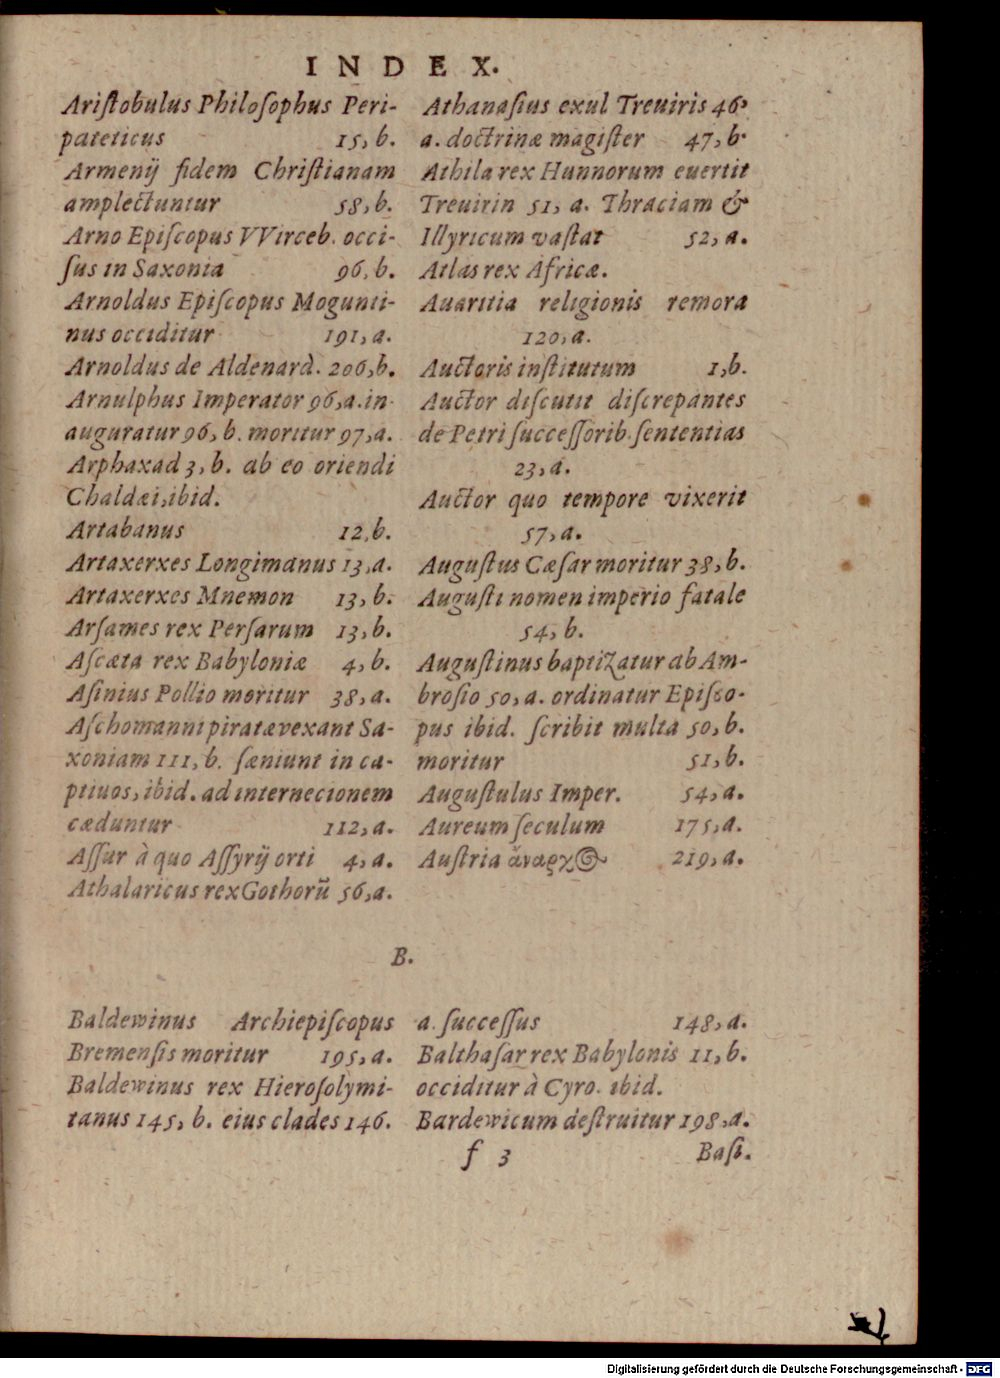 INDEX.
Ariſtobulus Philoſophus Peri-
pateticus 15, b.
Armenij fidem Chriſtianam
amplectuntur 58, b.
Arno Epiſcopus VVirceb. occi-
ſus in Saxonia 96, b.
Arnoldus Epiſcopus Mogunti-
nus occiditur 191, a.
Arnoldus de Aldenard. 206, b.
Arnulphus Imperator 96, a. in-
auguratur 96, b. moritur 97, a.
Arphaxad 3, b. ab eo oriendi
Chaldæi, ibid.
Artabanus 12, b.
Artaxerxes Longimanus 13, a.
Artaxerxes Mnemon 13, b.
Arſames rex Perſarum 13, b.
Aſcæta rex Babyloniæ 4, b.
Aſinius Pollio moritur 38, a.
Aſchomanni piratæ vexant Sa-
xoniam 111, b. ſæniunt in ca-
ptiuos, ibid. ad internecionem
cæduntur 112, a.
Aſſur à quo Aſſyrij orti 4, a.
Athalaricus rex Gothorũ 56, a.
Athanaſius exul Treuiris 46,
a. doctrinæ magiſter 47, b.
Athila rex Hunnorum euertit
Treuirin 51, a. Thraciam &
Illyricum vaſtat 52, a.
Atlas rex Africæ.
Auaritia religionis remora
120, a.
Auctoris inſtitutum 1, b.
Auctor diſcutit diſcrepantes
de Petri ſucceſſorib. ſententias
23, a.
Auctor quo tempore vixerit
57, a.
Auguſtus Cæſar moritur 38, b.
Auguſti nomen imperio fatale
54, b.
Auguſtinus baptizatur ab Am-
broſio 50, a. ordinatur Epiſco-
pus ibid. ſcribit multa 50, b.
moritur 51, b.
Auguſtulus Imper. 54, a.
Aureum ſeculum 175, a.
Auſtria ἄναρχος 219, a.
B.
Baldewinus Archiepiſcopus
Bremenſis moritur 195, a.
Baldewinus rex Hieroſolymi-
tanus 145, b. eius clades 146.
a. ſucceſſus 148, a.
Balthaſar rex Babylonis 11, b.
occiditur à Cyro. ibid.
Bardewicum deſtruitur 198, a.
f 3 Baſi.
Digitalisierung gefördert durch die Deutsche Forschungsgemeinschaft - DFG